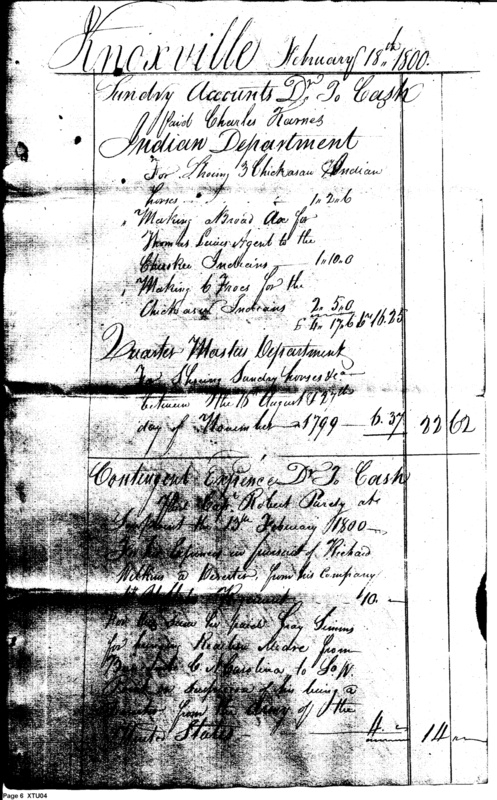 Knoxville February 18th 1800.
Sundry Accounts Dr To Cash
Paid Charles Harnes
Indian Department
For Shoeing 3 Chickasaw Indian
horses 1 " 2 " 6
" Making a Broad Axe for
Agent to the
Cherokee Indians 1 " 10 " 0
" Making 6 Froes for the
Chickasaw Indians 2 " 5 " 0
17 " 6 16.25
Quarter Masters Department
For Shoeing Sundry horses &ca
between the 16 August & 27th
day of November 1799 6.37 22 62
Contingent Expence Dr To Cash
Paid Capt. Robert Purdy at
the 13th February 1800
For his Expences in pursuit of Richard
Wilkins a Deserter from his Company
$10. —
For this Sum he paid Gray Simms
for bringing from
Carolina to So W
Point on Suspicion of his being a
Deserter from the Army of the
United States 4 " — 14 —
Page 6 XTU04